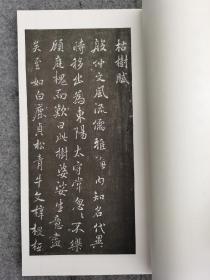 枯樹賦
殷仲文風流儒雅海内知名代異
時移出為東陽太守常忽〻不樂
顧庭槐而歎曰此樹婆娑生意盡
矣至如白鹿貞松青牛文梓根柢